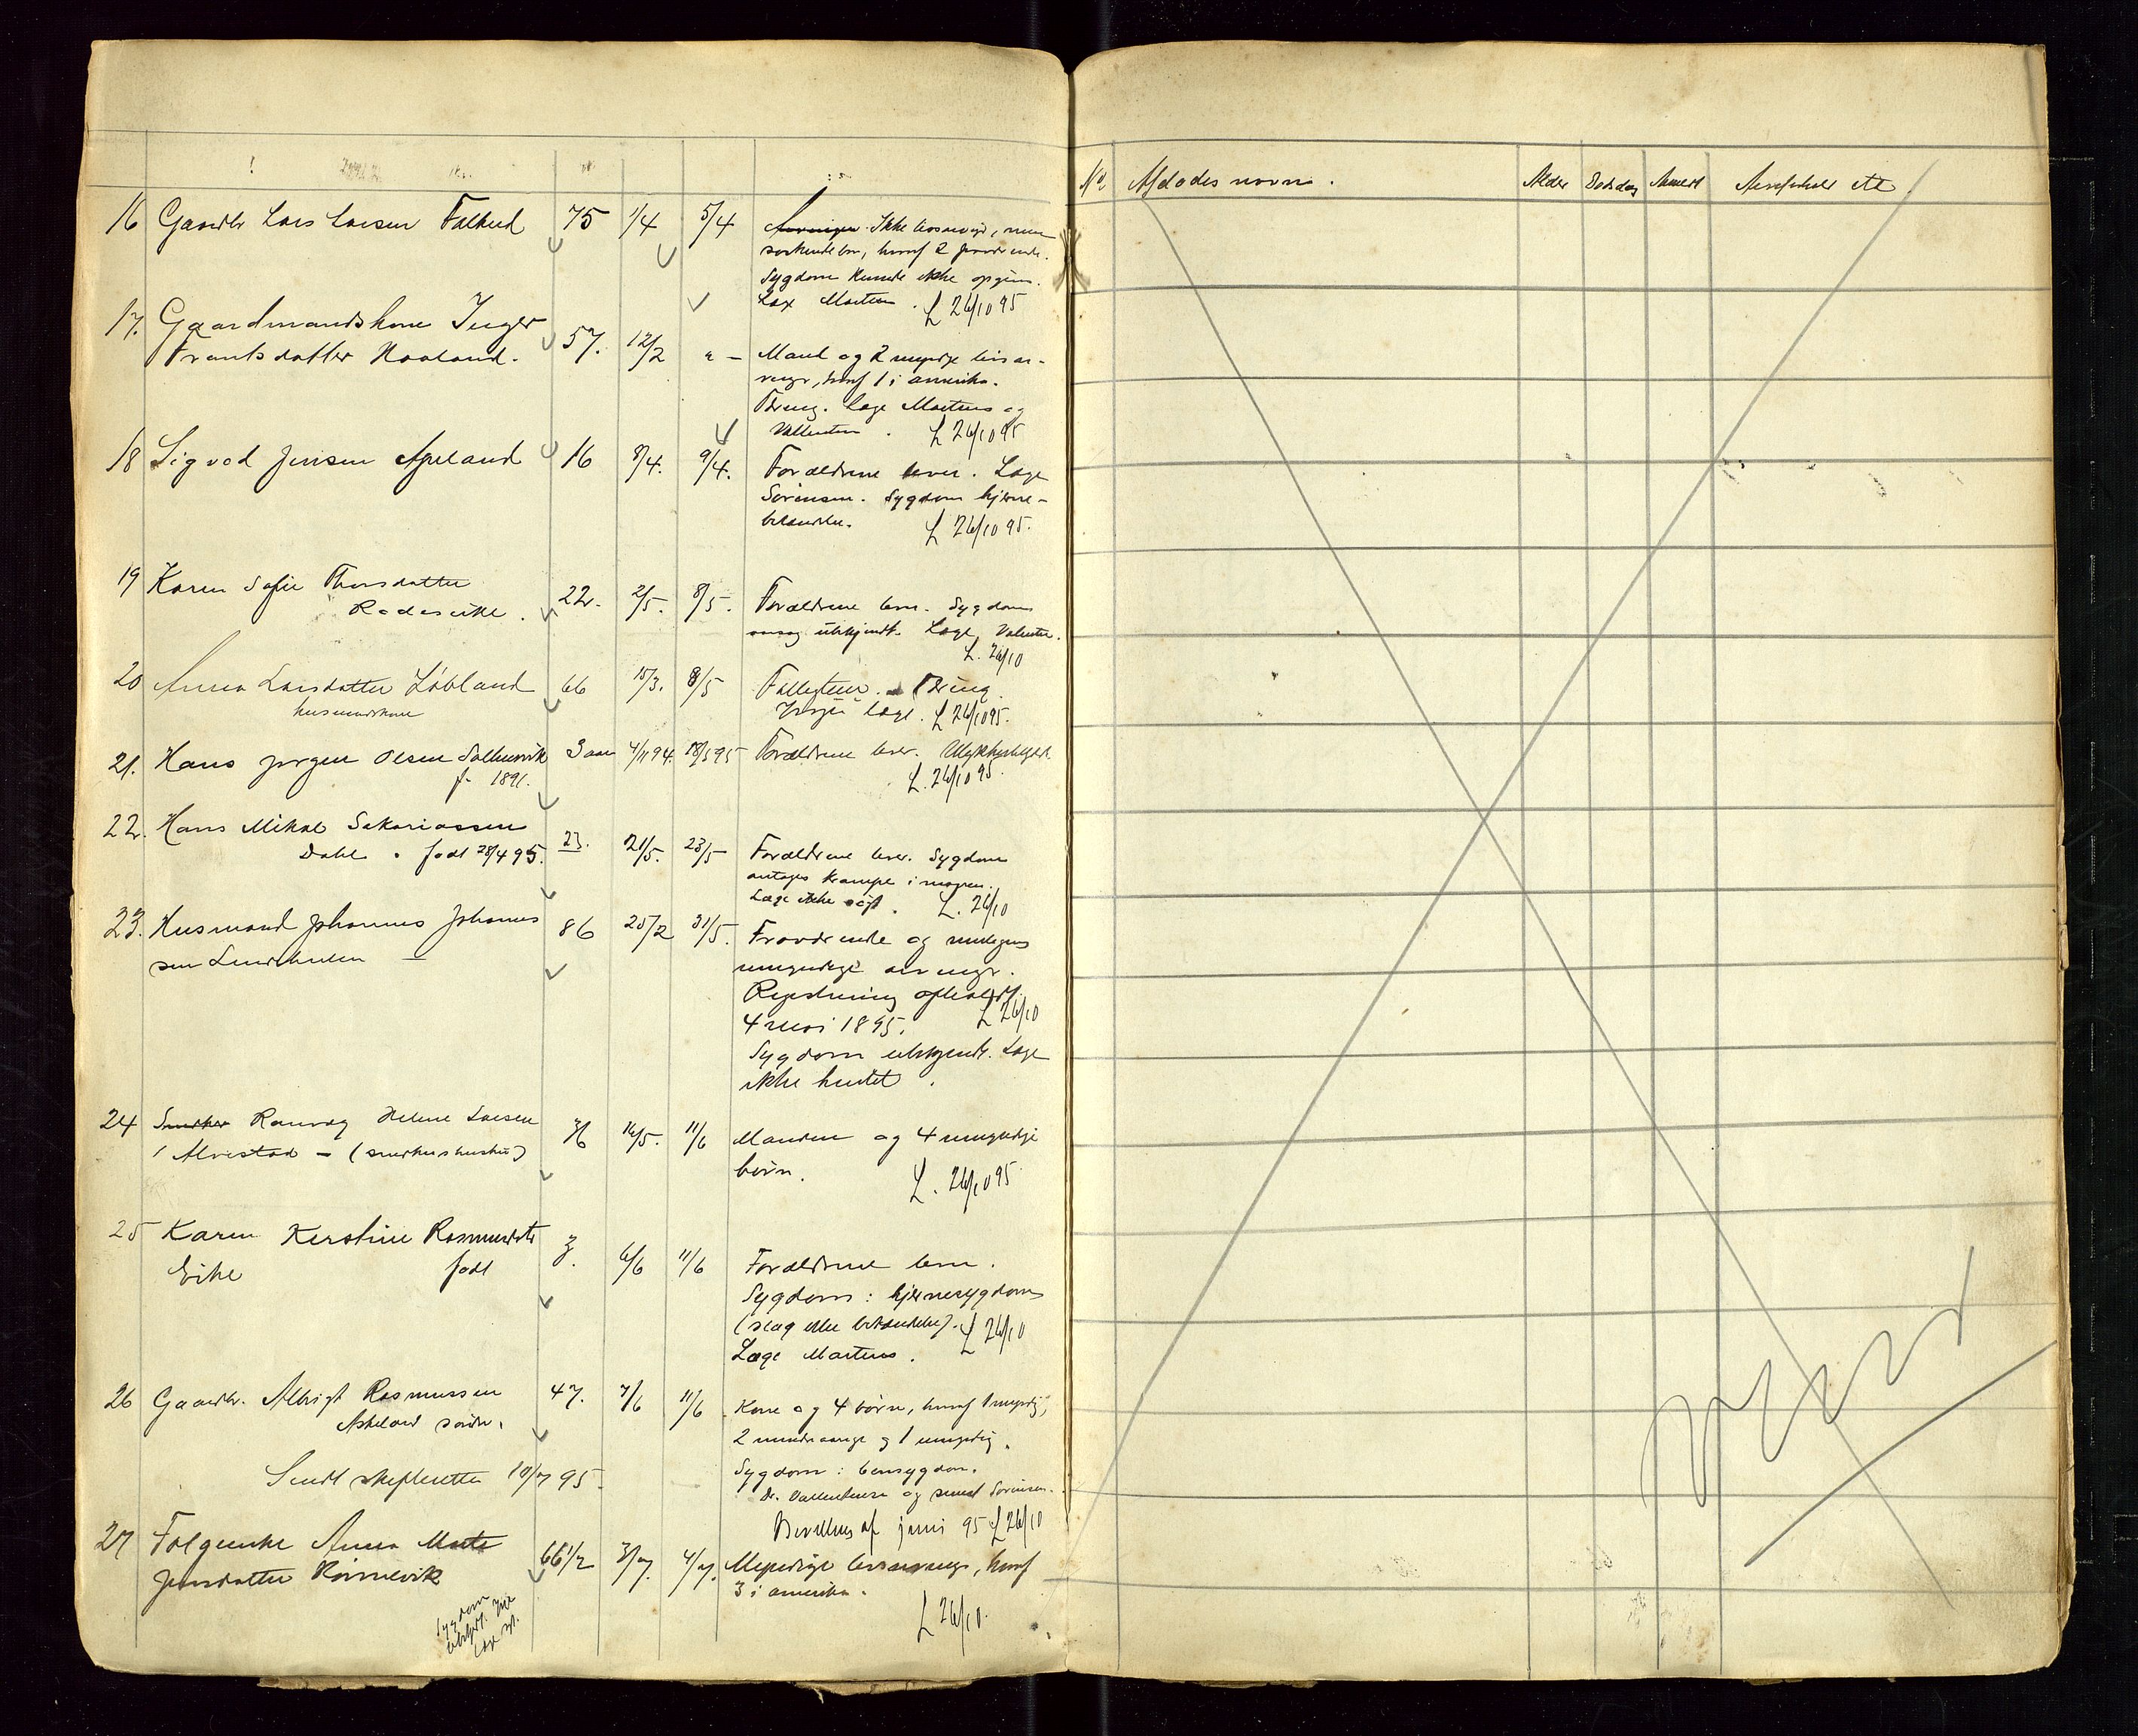 16 Gaardbr Lars Larsen Falkeid 75 1/4 5/4 Arvinger. Ikke livsarving, men
søskendebn, hvoraf 2 fraværende.
Sygdom kunde ikke opgives.
Læge Martens. L 26/10 95
17. Gaardmandskone Inger
Frantsdatter Haaland. 57. 12/2 " – Mand og 2 myndige livsar-
vinger, hvoraf 1 i amerika.
Tæring. Læge Martens og
Vallentin. L 26/10 95
18 Sigvad Jensen Apeland 16 8/4. 9/4. Forældrene lever. Læge
Sörensen. Sygdom hjerne-
betændelse. L 26/10 95.
19 Karen Sofie Thorsdatter
Radaseike. 22. 2/5. 8/5. Forældrene lever. Sygdoms
aarsag ubekjendt. Læge Valentin.
L. 26/10
20 Anna Larsdatter Löbland 66 15/3. 8/5 Tæring.
husmandskone læge. L 26/10 95.
21. Hans Jørgen Olsen 3 aar 4/11 94. 18/5 95 Forældrene lever. Ulykkestilfælde
f. 1891. L. 26/10 95.
22. Hans Mikal Sakariassen
Dahl. født 28/4 95. 23. 21/5. 23/5 Forældrene lever. Sygdom
antages krampe i maven.
Læge ikke søgt. L. 26/10
23. Husmand Johannes Johannes
sen 86 25/2 31/5. Fraværende og
umyndige arvinger.
Registrering afholdt
4 mai 1895. L 26/10
Sygdom ubekjendt. Læge
ikke hentet.
24 Smedker Ranveg Helene Larsen
Alvestad – (snedkers hustru) 36 16/5. 11/6 Manden og 4 umyndige
børn. L. 26/10 95
25 Karen Kerstine Rasmusdtr
Eike født 3. 6/6 11/6 Forældrene lever.
Sygdom: hjernesygdom
(slag eller betændelse). L 26/10
Læge Martens.
26 Gaardbr. Albrigt Rasmussen 47. 7/6 11/6 Kone og 4 børn, hvoraf 1 myndig,
Askeland søndre. 2 mindreaarige og 1 umyndig.
Sendt skifteretten 10/7 95. Sygdom: bensygdom.
Dr. Vallentinsen og samt Sørensen.
Bevilling af juni 95 L 26/10
27 Følgeenke Anna Marte
Jensdatter Rönnevik 66 1/2 3/7. 4/7. Myndige livsarvinger, hvoraf
3 i amerika.
Sygdom
ubekjendt. Ikke
læge søgt.
L 26/10.
No. Afdødes navn. Alder Dødsdag Anmeldt Arveforhold etc.